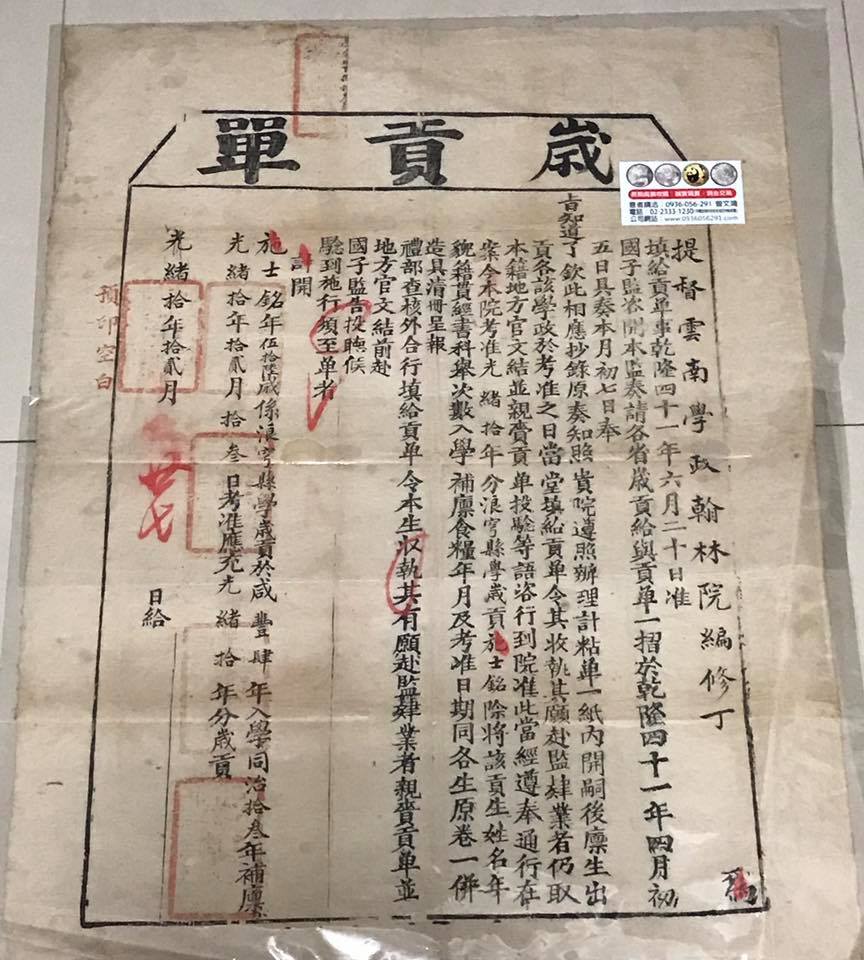 歲貢單
提督雲南學政翰林院編修丁 為
填給貢單事乾隆四十一年六月二十日准
國子監咨開本監奏請各省歲貢給與貢單一摺於乾隆四十一年四月初
五日具奏本月初七日奉
旨知道了欽此相應抄錄原奏知照貴院遵照辦理計粘單一紙內開嗣後廪生出
貢各該學政於考准之日當堂填給貢單令其收執其願赴監肄業者仍取
本籍地方官文結並親賫貢單投驗等語咨行到院准此當經遵奉通行在
案今本院考准光緒拾年分浪穹縣學歲貢施士銘除將該貢生姓名年
貌籍貫經書科舉次數入學補廪食糧年月及考准日期同各生原卷一併
造具清冊呈報
禮部查核外合行填給貢單令本生收執其有願赴監肄業者親賫貢單並
地方官文結前赴
國子監告投聽候
驗到施行須至单者
計開
施士銘年伍拾陸歲係浪穹縣學歲貢於咸豐肆年入學同治拾叁年補廪
光緒拾年拾貳月拾叁日考准應充光緒拾年分歲貢
光緒拾年拾貳月 廿七 日給
預印空白
意者請洽:0936-056-291 曾文鴻
電話:02-2333-1230
公司網站:www.0936056291.com